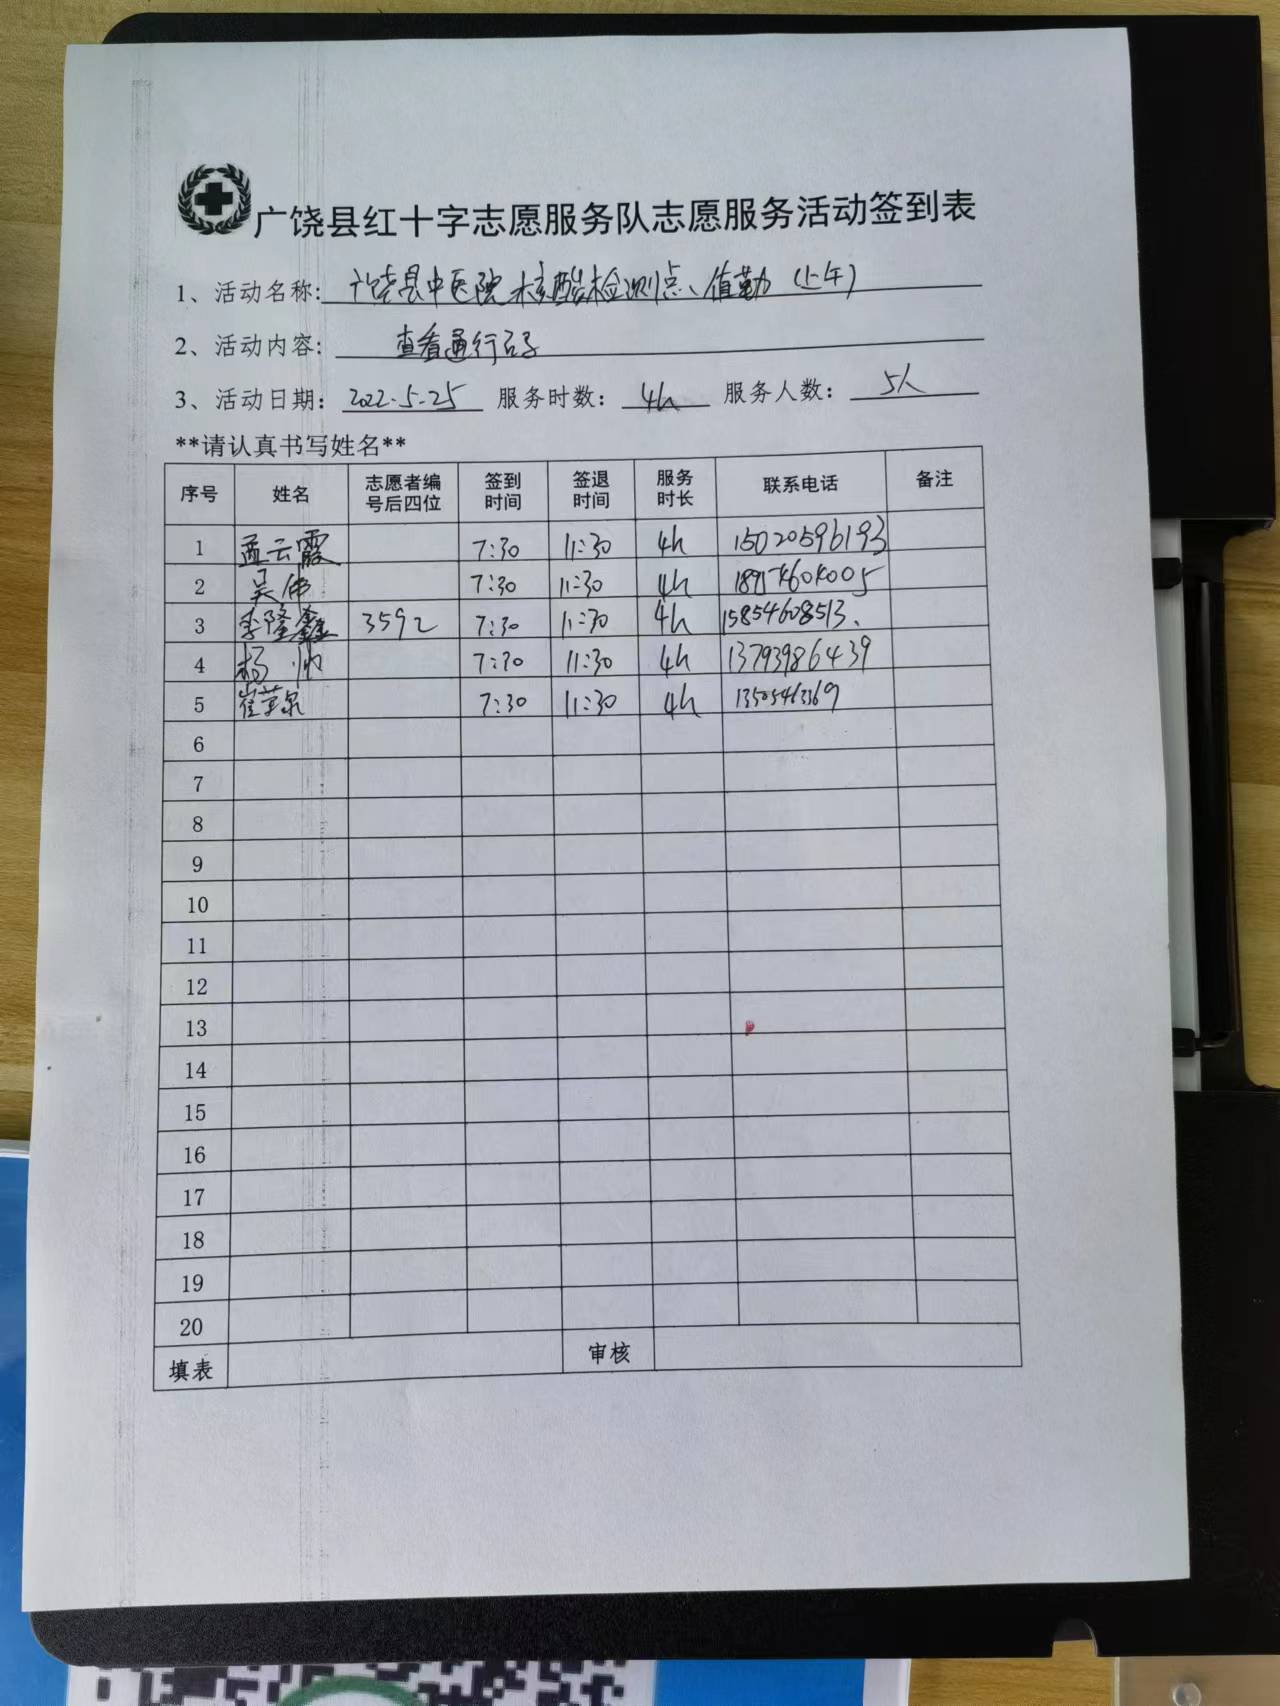 广饶县红十字志愿服务队志愿服务活动签到表
1、活动名称: 广饶县中医院核酸检测点、值勤(上午)
2、活动内容: 查看通行码
3、活动日期: 2022.5.25 服务时数: 4h 服务人数: 5人
**请认真书写姓名**
序号 姓名 志愿者编号后四位 签到时间 签退时间 服务时长 联系电话 备注
1 孟云霞 7:30 11:30 4h 15020596193
2 吴伟 7:30 11:30 4h
3 李隆鑫 3592 7:30 11:30 4h 15854608513、
4 杨帅 7:30 11:30 4h 13793986439
5 7:30 11:30 4h 13505463369
6
7
8
9
10
11
12
13
14
15
16
17
18
19
20
填表 审核